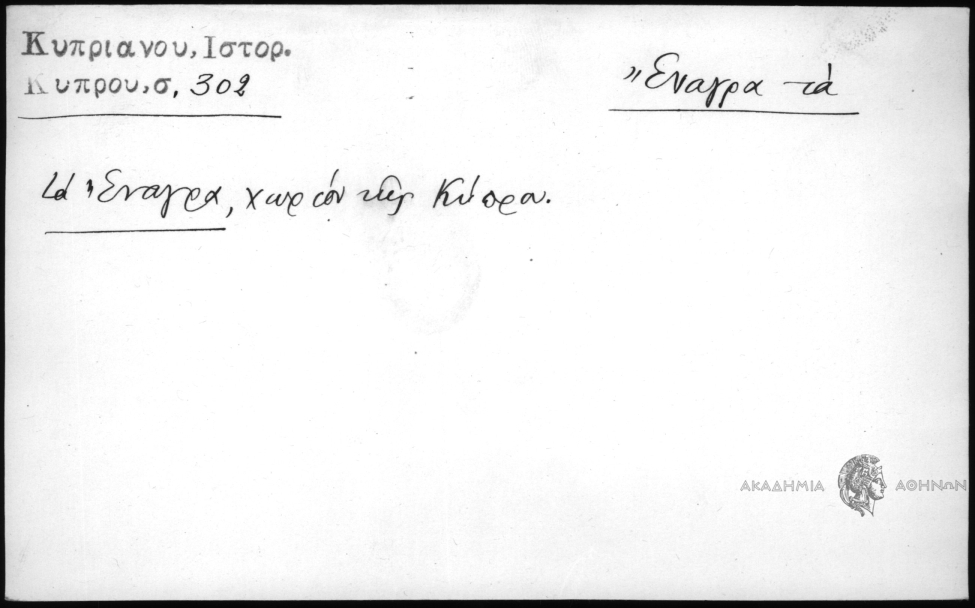 Κυπριανου, Ιστορ.
Κυπρου, σ, 302
Ἔναγρα τά
τά Ἔναγρα, χωρίον τῆς Κύπρου.
ΑΚΑΔΗΜΙΑ ΑΘΗΝΩΝ